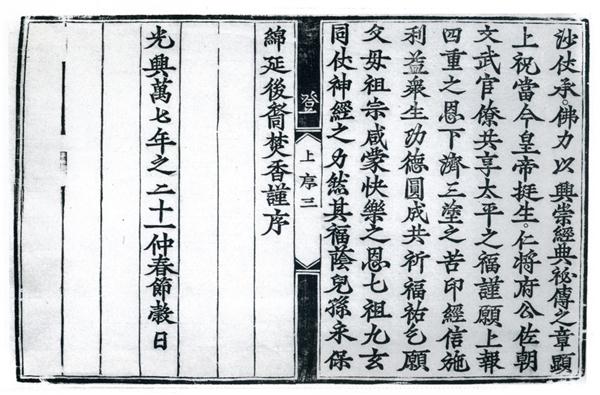 沙仗承。佛力以興崇經典祕傳之章顯
上祝當今皇帝挺生。仁將府公佐朝
文武官僚共享太平之福謹願上報
四重之恩下濟三塗之苦印經信施
利益衆生功德圓成共祈福祐乞願
父母祖宗咸蒙快樂之恩七祖九玄
同仗神經之力然其福蔭兒孫永保
登
上序三
綿延後裔焚香謹序
光興萬七年之二十一仲春節穀日